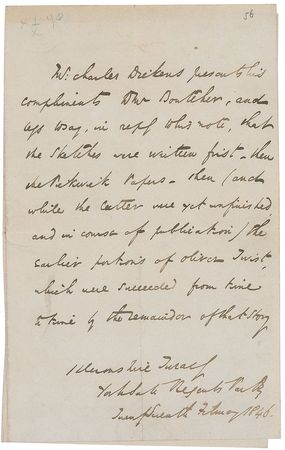 56
Mr. Charles Dickens presents his
compliments to Mr Boutcher, and
begs to say, in reply to his note, that
the Sketches were written first - then
the Pickwick Papers - then (and
while the latter were yet unfinished
and in course of publication) the
earlier portions of Oliver Twist,
which were succeeded from time
to time by the remainder of that Story
1 Devonshire Terrace
York Gate Regents Park
February 1840.